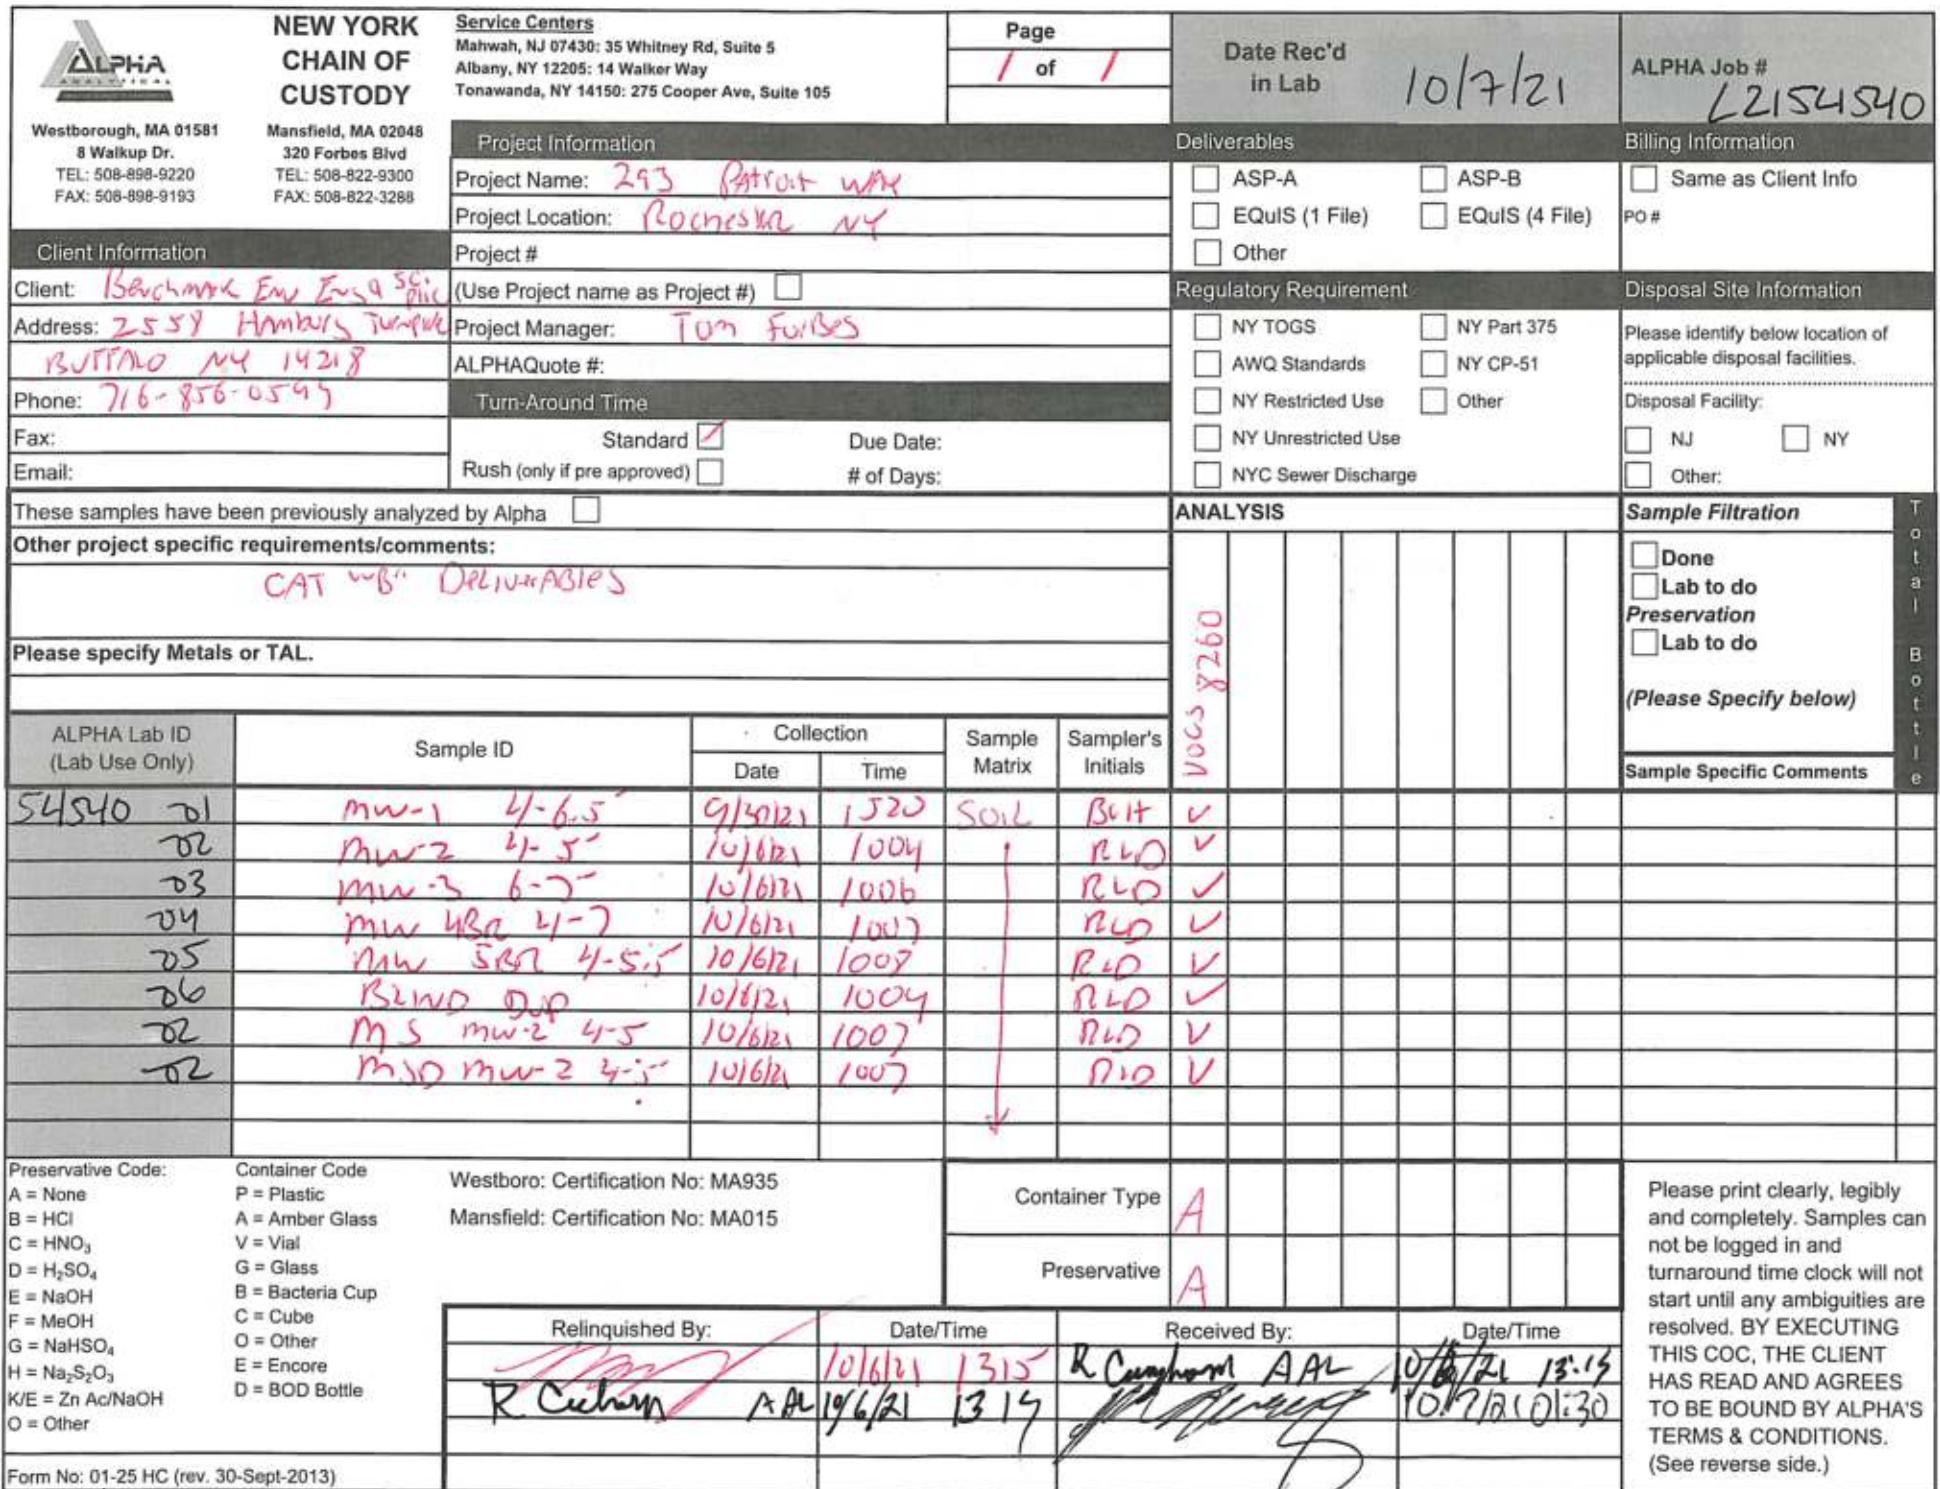 ALPHA
ANALYTICAL
NEW YORK
CHAIN OF
CUSTODY
Westborough, MA 01581
8 Walkup Dr.
TEL: 508-898-9220
FAX: 508-898-9193
Mansfield, MA 02048
320 Forbes Blvd
TEL: 508-822-9300
FAX: 508-822-3288
Service Centers
Mahwah, NJ 07430: 35 Whitney Rd, Suite 5
Albany, NY 12205: 14 Walker Way
Tonawanda, NY 14150: 275 Cooper Ave, Suite 105
Page
1 of 1
Date Rec'd
in Lab 10/7/21
ALPHA Job #
L2154540
Client Information
Client: Benchmark Env Eng & Sci PLLC
Address: 2558 Hamburg Turnpike
BUFFALO NY 14218
Phone: 716-856-0599
Fax:
Email:
Project Information
Project Name: 293 Patriot WAY
Project Location: Rochester NY
Project #
(Use Project name as Project #)
Project Manager: Tom Forbes
ALPHAQuote #:
Turn-Around Time
Standard
Due Date:
Rush (only if pre approved)
# of Days:
Deliverables
ASP-A
ASP-B
EQuIS (1 File)
EQuIS (4 File)
Other
Regulatory Requirement
NY TOGS
NY Part 375
AWQ Standards
NY CP-51
NY Restricted Use
Other
NY Unrestricted Use
NYC Sewer Discharge
Billing Information
Same as Client Info
PO #
Disposal Site Information
Please identify below location of
applicable disposal facilities.
Disposal Facility:
NJ
NY
Other:
These samples have been previously analyzed by Alpha
Other project specific requirements/comments:
CAT "B" Deliverables
Please specify Metals or TAL.
ANALYSIS
VOCs 8260
Sample Filtration
Done
Lab to do
Preservation
Lab to do
(Please Specify below)
Total Bottle
ALPHA Lab ID
(Lab Use Only)
Sample ID
Collection
Date
Time
Sample
Matrix
Sampler's
Initials
Sample Specific Comments
54540 01 MW-1 4-6.5' 9/30/21 1520 SOIL BCH ✓
02 MW-2 4-5' 10/6/21 1004 RLD ✓
03 MW-3 6-7' 10/6/21 1006 RLD ✓
04 MW 4BR 4-7 10/6/21 1007 RLD ✓
05 MW 5BR 4-5.5 10/6/21 1008 RLD ✓
06 BLIND DUP 10/6/21 1004 RLD ✓
02 MS MW-2 4-5 10/6/21 1007 RLD ✓
02 MSD MW-2 4-5' 10/6/21 1007 RLD ✓
Preservative Code:
A = None
B = HCl
C = HNO₃
D = H₂SO₄
E = NaOH
F = MeOH
G = NaHSO₄
H = Na₂S₂O₃
K/E = Zn Ac/NaOH
O = Other
Container Code
P = Plastic
A = Amber Glass
V = Vial
G = Glass
B = Bacteria Cup
C = Cube
O = Other
E = Encore
D = BOD Bottle
Westboro: Certification No: MA935
Mansfield: Certification No: MA015
Container Type A
Preservative A
Relinquished By:
Date/Time
Received By:
Date/Time
10/6/21 1315 R AAL 10/6/21 13:15
R AAL 10/6/21 10/7/21 01:30
Please print clearly, legibly
and completely. Samples can
not be logged in and
turnaround time clock will not
start until any ambiguities are
resolved. BY EXECUTING
THIS COC, THE CLIENT
HAS READ AND AGREES
TO BE BOUND BY ALPHA'S
TERMS & CONDITIONS.
(See reverse side.)
Form No: 01-25 HC (rev. 30-Sept-2013)